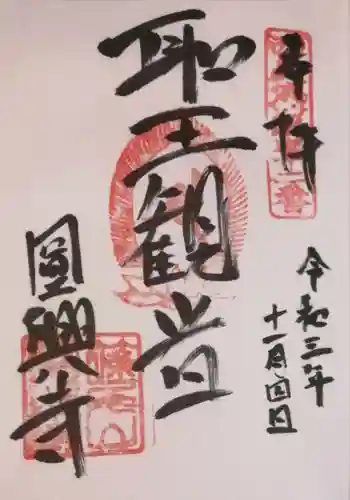 奉拝
聖観音
圓興寺
令和三年
十一月四日